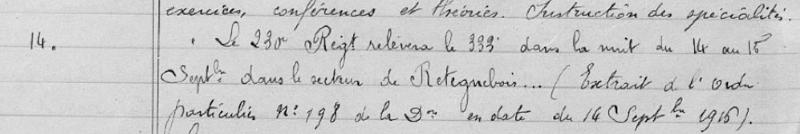 exercices, conférences et théories. Instruction des spécialités.
14. Le 230e Régt relèvera le 333e dans la nuit du 14 au 15
Septbre dans le secteur de Retegnebois... (Extrait d l'Ordre
particulier n° 198 de la Don en date du 14 Septbre 1916).